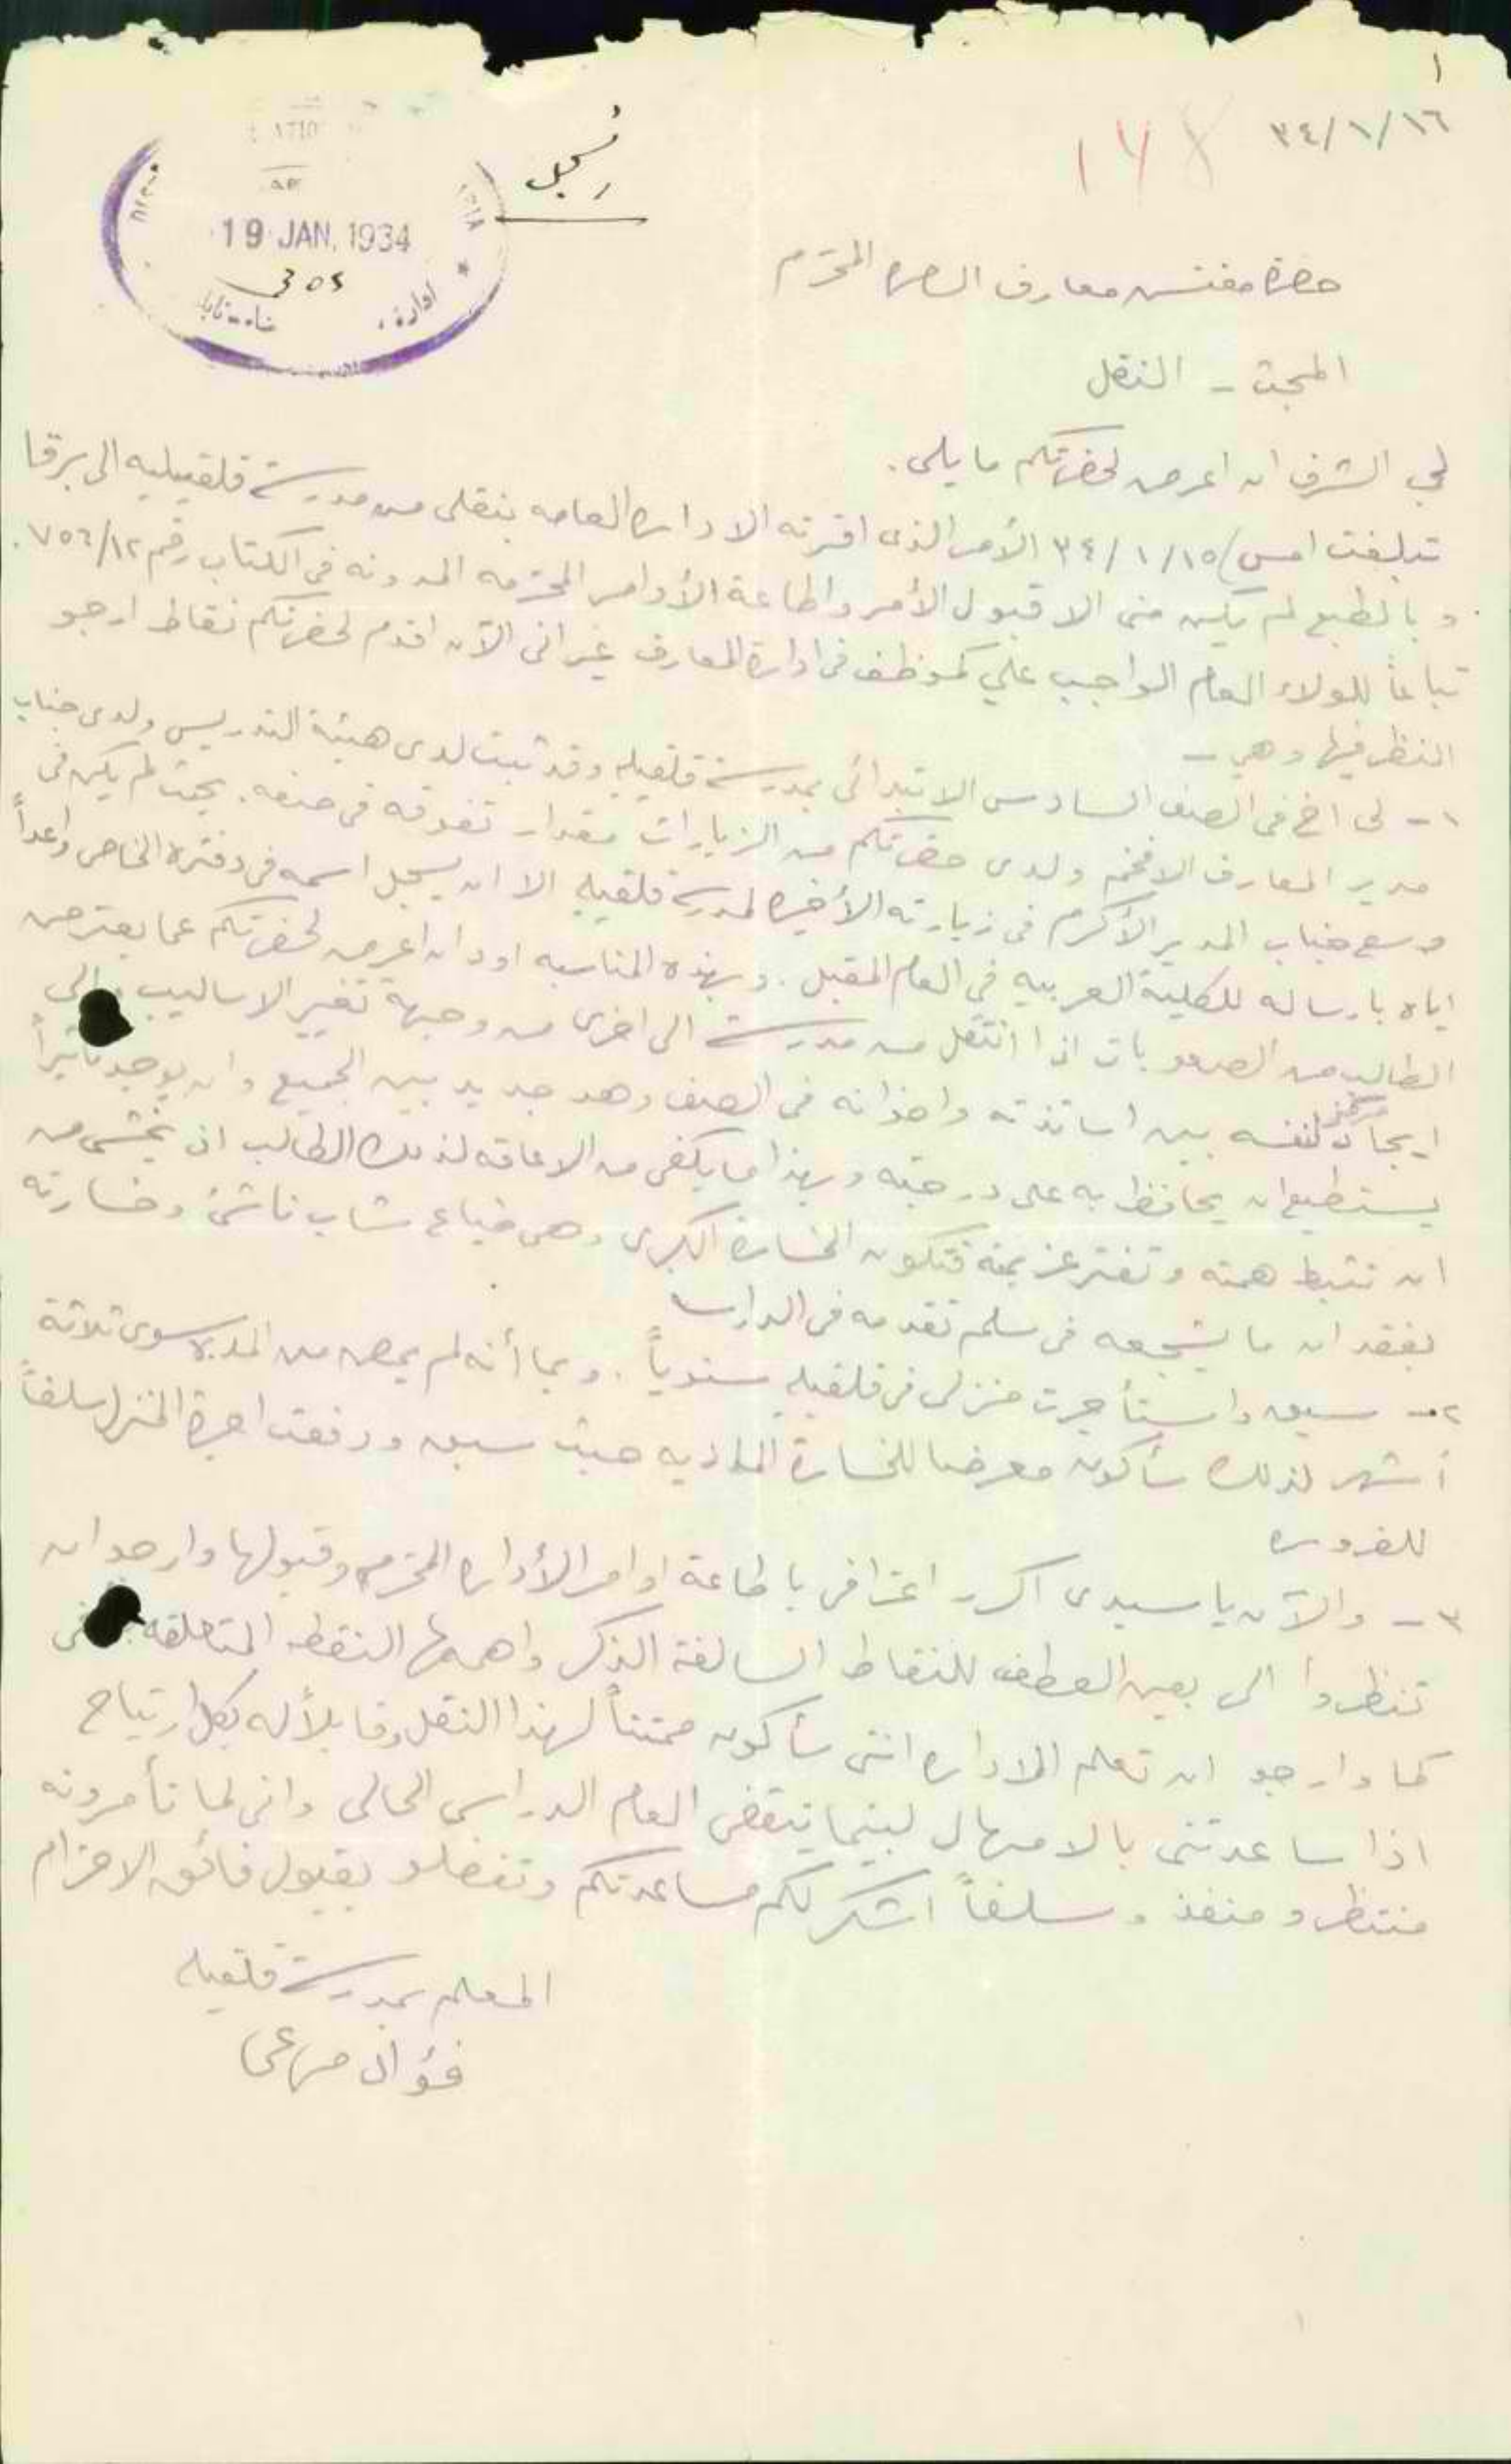 ١
٣٤/١/١٦
١٧٨
سجل
19 JAN. 1934
305
حضرة مفتش معارف المحترم
المبحث - النقل
لي الشرف ان اعرض لحضرتكم ما يلي.
تبلغت امس ٣٤/١/١٥ الأمر الذى اقرته الاداره العامه بنقلى من مدرسة قلقيليه الى برقا
وبالطبع لم يكن منى الا قبول الأمر واطاعة الأوامر المحترمه المدونه فى الكتاب رقم ٧٥٦/١٢.
تباعاً للولاء العام الواجب علي كموظف فى ادارة المعارف غير انى الآن اقدم لحضرتكم نقاط ارجو
النظر فيها وهي -
١- لى اخ فى الصف السادس الابتدائى بمدرسة قلقيليه وقد ثبت لدى هيئة التدريس ولدى جناب
مدير المعارف الافخم ولدى حضرتكم من الزيارات مقدار تفوقه فى صفه. بحيث لم يكن فى
وسع جناب المدير الأكرم فى زيارته الأخيره لمدرسة قلقيليه الا ان يسجل اسمه فى دفتره الخاص واعداً
اياه بارساله للكلية العربيه في العام المقبل. وبهذه المناسبه اود ان اعرض لحضرتكم عما يعترض
الطالب من الصعوبات اذا انتقل من مدرسة الى اخرى من وجهة تغير الاساليب والى
ايجاد مركز لنفسه بين اساتذته واخوانه فى الصف وهو جديد بين الجميع وان يوجد تأثيراً
يستطيع ان يحافظ به على درجته وبهذا ما يكفى من الاعاقه لذلك الطالب اذ يخشى من
ان تثبط همته وتفتر عزيمته فتكون الخسارة الكبرى وهى ضياع شاب ناشئ وخسارته
بفقدان ما يشجعه فى سلم تقدمه فى الدارسه
٢- سبق واستأجرت منزلى فى قلقيليه سنوياً. وبما أنه لم يمض من المدة سوى ثلاثة
أشهر لذلك سأكون معرضا للخسارة الماديه حيث سبق ودفعت اجرة المنزل سلفاً
للضروره
٣- والآن يا سيدى اكرر اعترافى باطاعة اوامر الأداره المحترمه وقبولها وارجو ان
تنظروا الى بعين العطف للنقاط السالفة الذكر واهمها النقطه المتعلقه
كما وارجو ان تعلم الاداره اننى سأكون ممتناً لهذا النقل وقابلاً له بكل ارتياح
اذا ساعدتنى بالامهال لبينما ينقضى العام الدراسى الحالى وانى لما تأمرونه
منتظر ومنفذ وسلفاً اشكر لكم مساعدتكم وتفضلو بقبول فائق الاحترام
المعلم بمدرسة قلقيليه
فؤاد مرعى